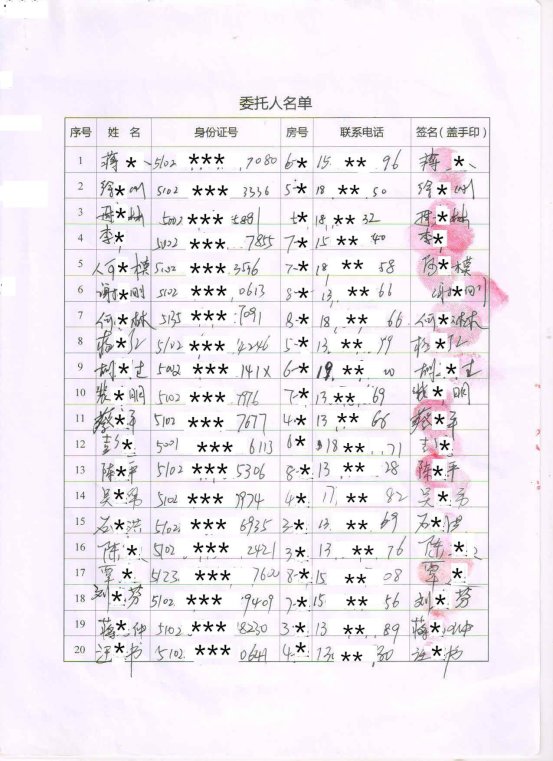 委托人名单
序号 姓 名 身份证号 房号 联系电话 签名(盖手印)
1 蒋*、 5102 *** 7080 6* 15 ** 96 蒋*、
2 徐* 5102 *** 3336 5* 18 ** 50 徐*
3 *林 5002 *** * 18 ** 32 *林
4 李* 5102 *** 7855 7* 15 ** 40 李*
5 何*模 5102 *** 3596 7* 18 ** 58 *模
6 谢*刚 5102 *** 0613 8* 13 ** 66 谢*刚
7 何*林 5135 *** 7091 8* 18 ** 66 何*林
8 杨*红 5102 *** 4246 5* 13 ** 79 杨*红
9 胡* 5002 *** 141X 6* 19 ** 胡*
10 裴*明 5102 *** 7 13 ** 69 裴*明
11 蔡*平 5102 *** 7677 4* 13 ** 66 蔡*平
12 彭* 5001 *** 6113 6* 18 ** 71 彭*
13 陈*平 5102 *** 5306 8* 13 ** 28 陈*平
14 吴* 5102 *** 7974 4* 17 ** 82 吴*
15 石* 5102 *** 6935 2* 13 ** 69 石*
16 陈* 5102 *** 2421 3* 13 ** 76 陈*
17 覃* 5123 *** 7600 8* 15 ** 08 覃*
18 刘*芳 5102 *** 9409 7* 15 ** 56 刘*芳
19 蒋*仲 5102 *** 8230 3* 13 ** 89 蒋*仲
20 汪*书 5102 *** 0641 4* 13 ** 80 汪*书